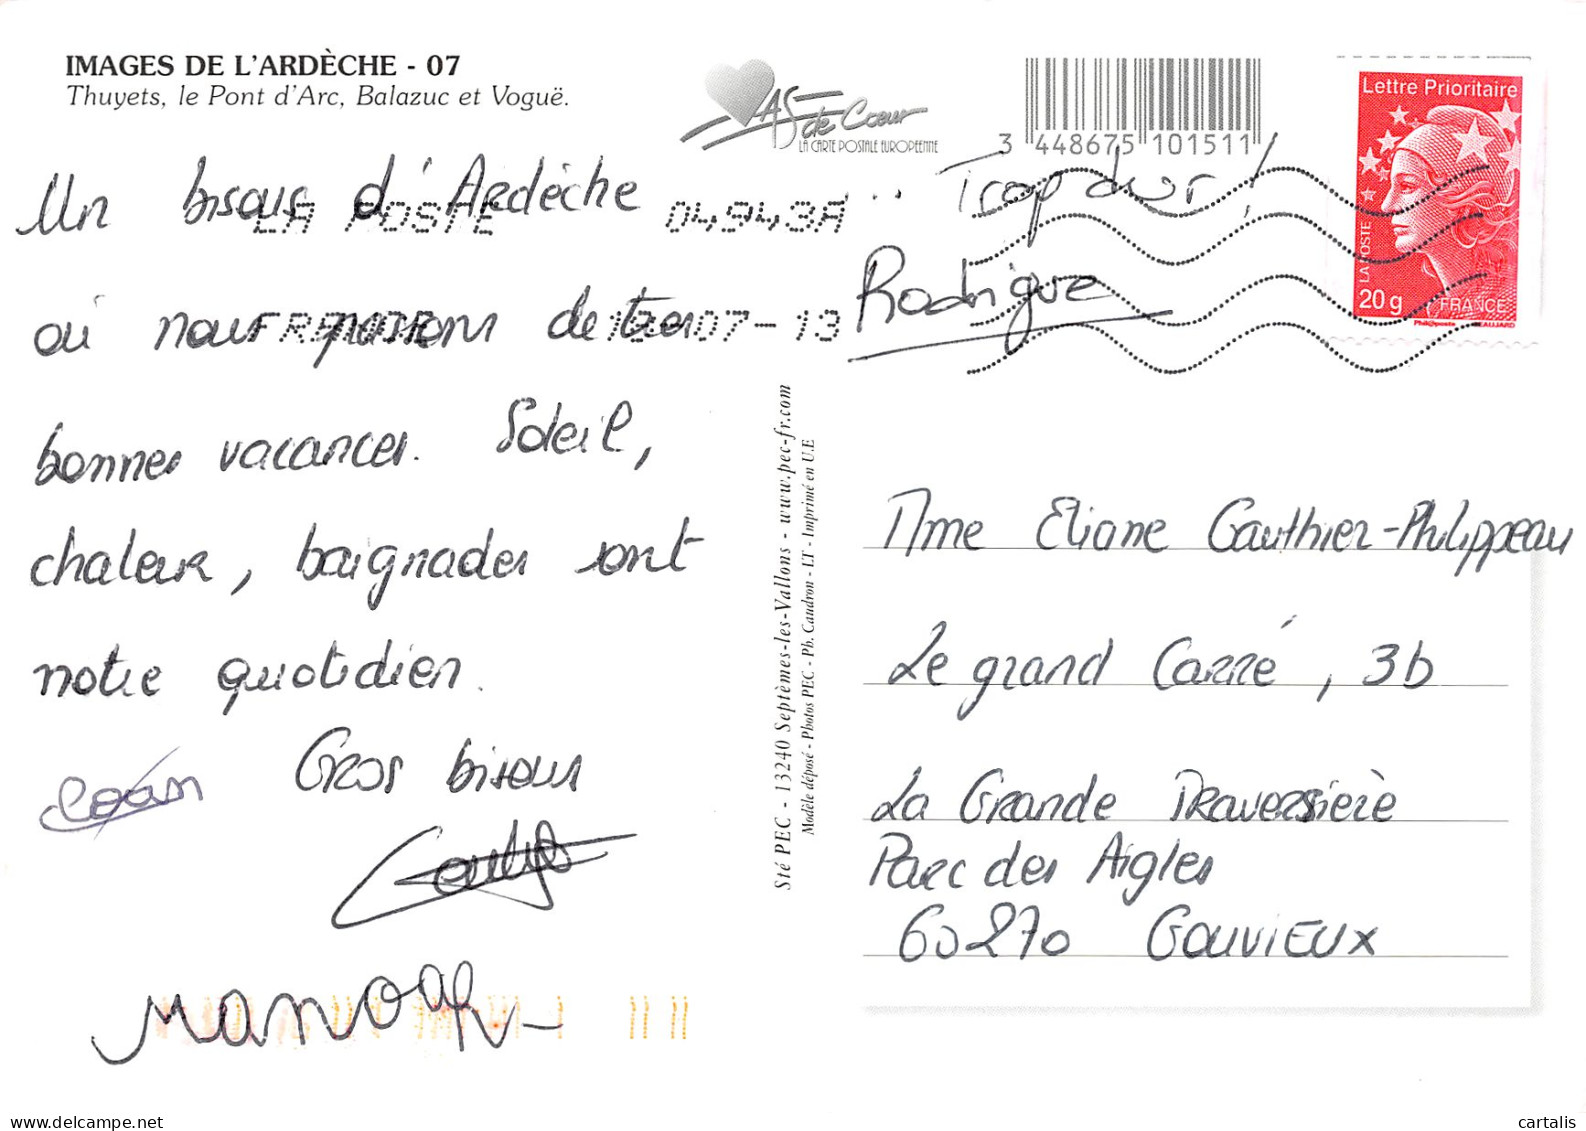 IMAGES DE L'ARDÈCHE - 07
Thuyets, le Pont d'Arc, Balazuc et Voguë.
AS de Cœur
LA CARTE POSTALE EUROPEENNE
3 448675 101511
Lettre Prioritaire
LA POSTE
20g
FRANCE
Phil@poste
BEAUJARD
LA POSTE 04943A
07-13
Un bisous d'Ardèche
où nous passons de très
bonnes vacances. Soleil,
chaleur, baignades sont
notre quotidien.
Gros bisous
Manoah
.. Trop dur!
Rodrigue
Sté PEC - 13240 Septèmes-les-Vallons - www.pec-fr.com
Modèle déposé - Photos PEC - Ph. Caudron - LT - Imprimé en U.E
Mme Eliane Gauthier-Philippeau
Le grand Carré, 3b
La Grande Traversière
Parc des Aigles
60270 GOUVIEUX
delcampe.net
cartalis